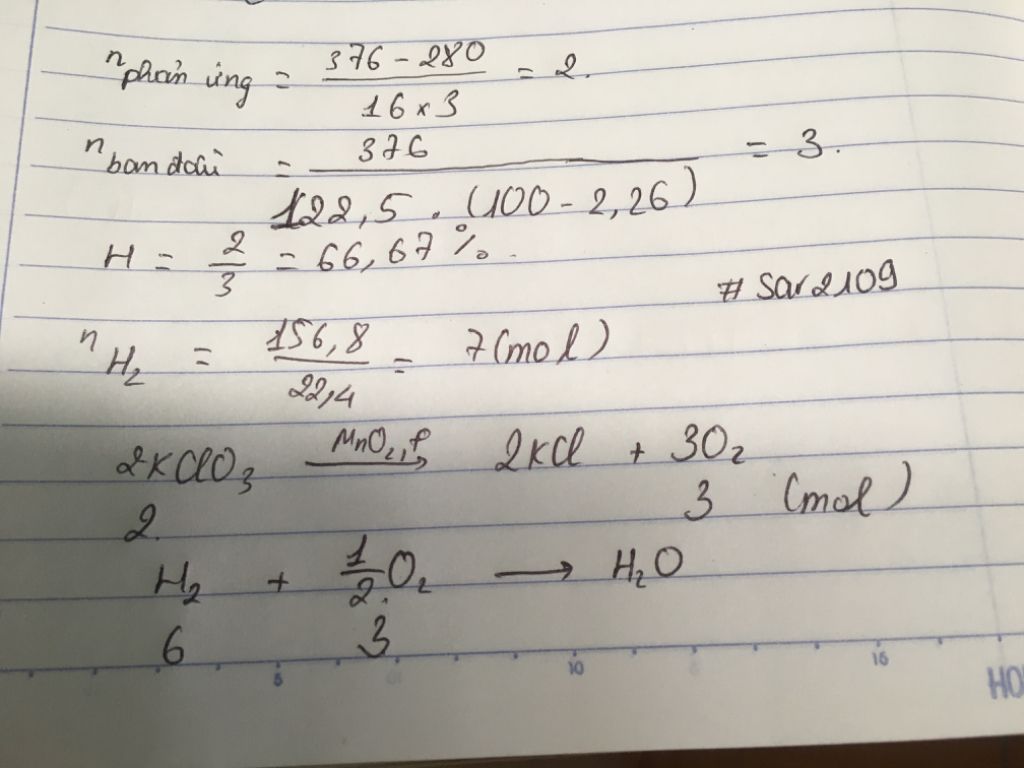 n phản ứng = 376 - 280 / 16 x 3 = 2.
n ban đầu = 376 / 122,5 . (100 - 2,26) = 3.
H = 2/3 = 66,67%.
# Sar2109
n H2 = 156,8 / 22,4 = 7(mol)
2KClO3 MnO2, t° → 2KCl + 3O2
2. 3 (mol)
H2 + 1/2 O2 → H2O
6 3
5 10 15
HO